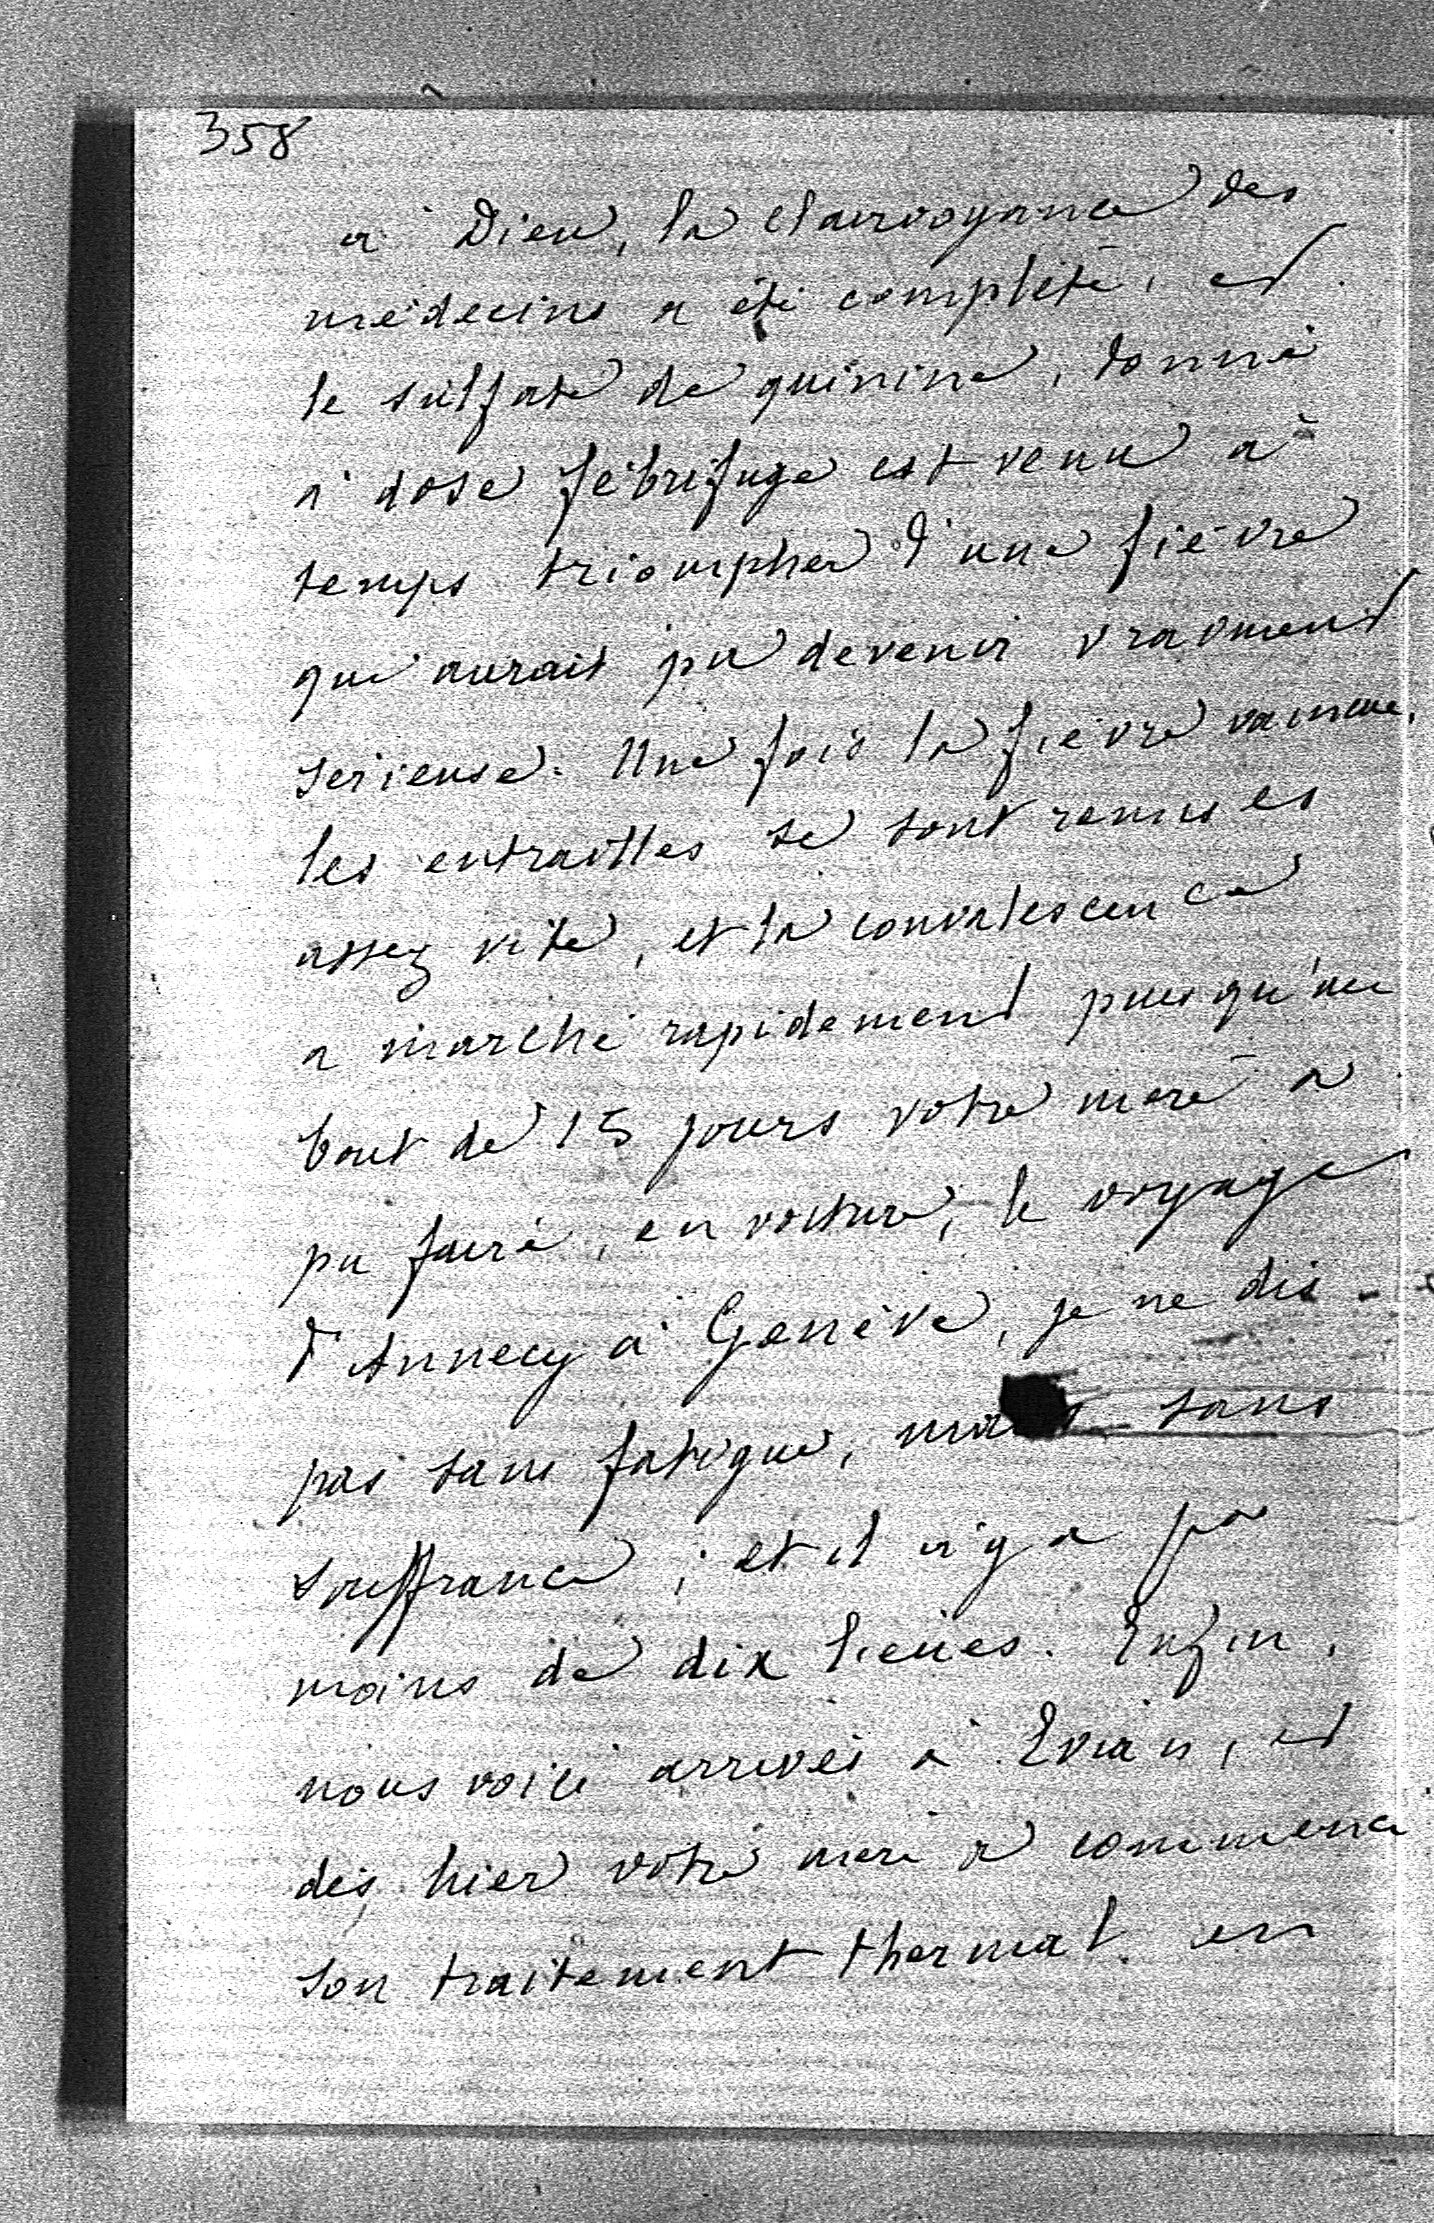 358
à Dieu, la clairvoyance des
médecins a été complète, et
le sulfate de quinine, donné
à dose fébrifuge est venu à
temps triompher d'une fièvre
qui aurait pu devenir vraiment
sérieuse. Une fois la fièvre vaincue,
les entrailles se sont remises
assez vite, et la convalescence
a marché rapidement puisqu'au
bout de 15 jours votre mère a
pu faire, en voiture, le voyage
d'Annecy à Genève, je ne dis
pas sans fatigue, mais sans
souffrance ; et il n'y a pas
moins de dix lieues. Enfin,
nous voici arrivés à Evian, et
dès hier votre mère a commencé
son traitement thermal en